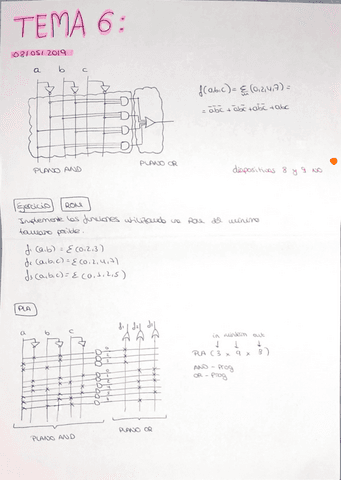 TEMA 6:
02/05/2019
a b c
f(a,b,c) = Σ (0,2,4,7) =
= a̅b̅c̅ + a̅bc̅ + ab̅c̅ + abc
PLANO AND
PLANO OR
diapositivas 8 y 9 NO
Ejercicio ROM
Implemente las funciones utilizando una ROM de mínimo
tamaño posible.
f₁ (a,b) = Σ (0,2,3)
f₂ (a,b,c) = Σ (0,1,4,7)
f₃ (a,b,c) = Σ
PLA
a b c
f₁ f₂ f₃
in out
PLA
AND - Prog
OR - Prog
PLANO AND
PLANO OR